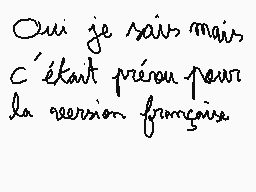 Oui je sais mais
c'était prévu pour
la version française